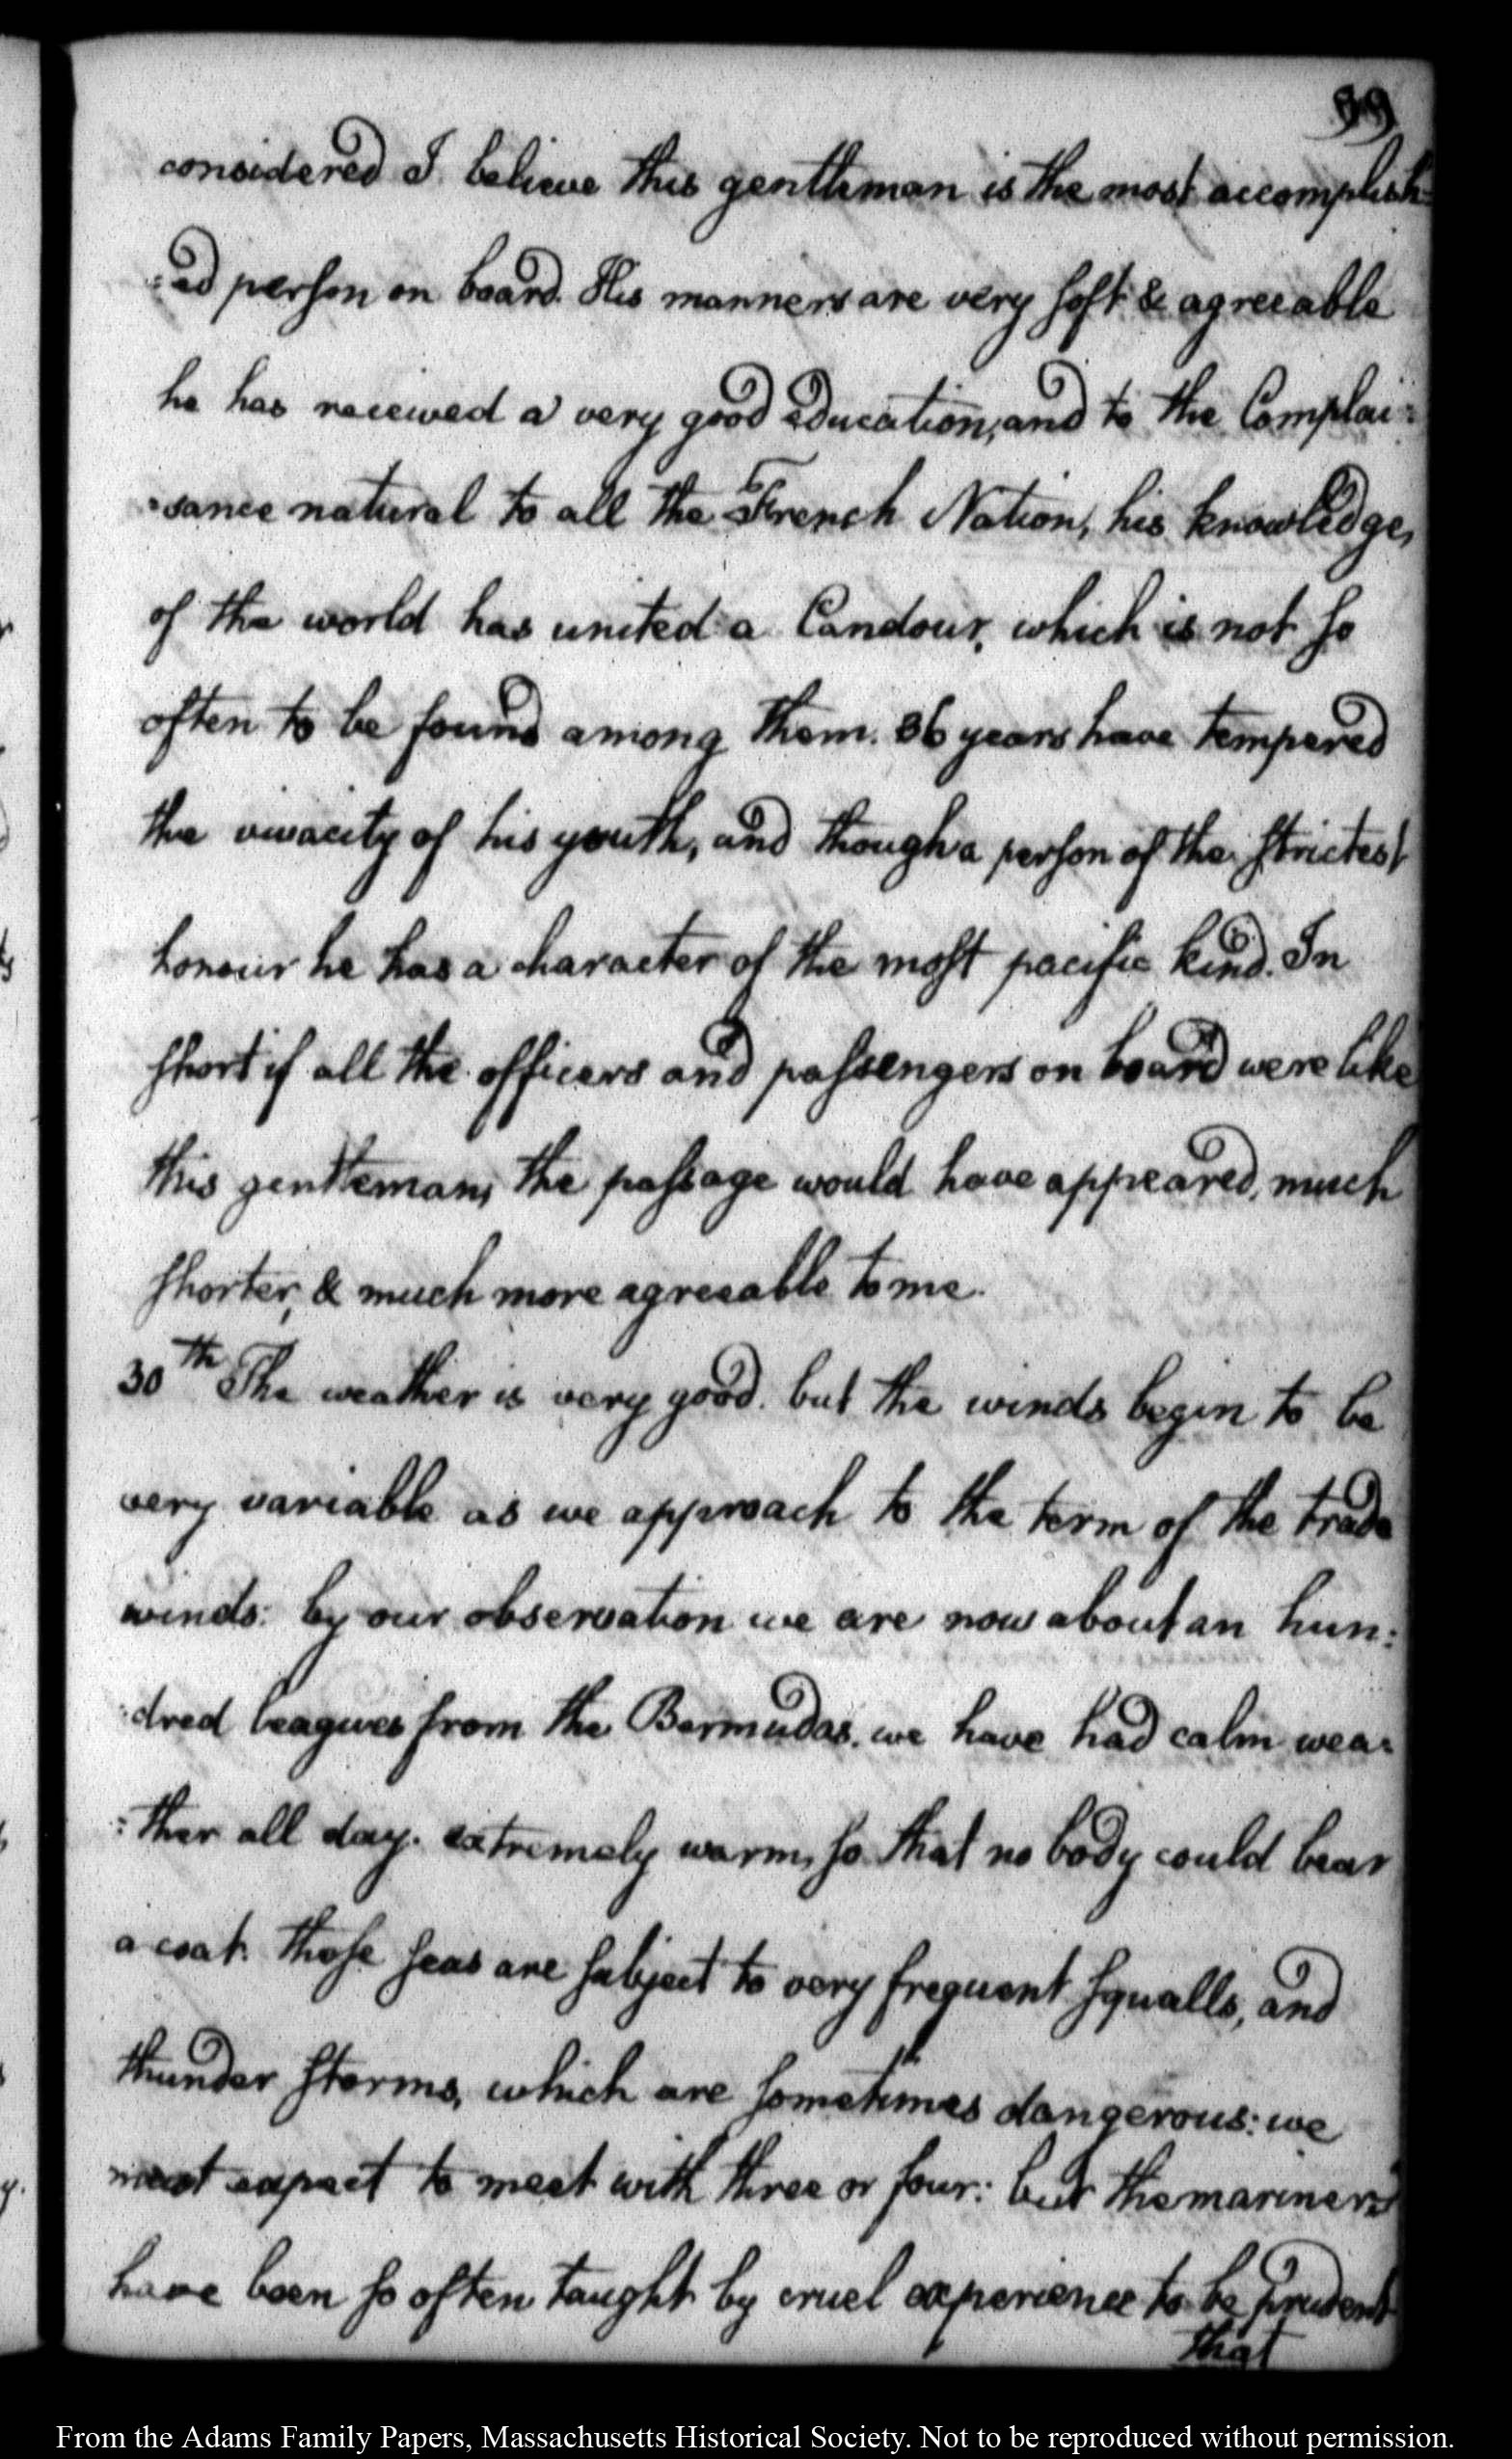 99
considered I believe this gentleman is the most accomplish-
:ed person on board. His manners are very soft & agreeable
he has received a very good education, and to the Complai:
:sance natural to all the French Nation, his knowledge,
of the world has united a Candour, which is not so
often to be found among them. 36 years have tempered
the vivacity of his youth, and though a person of the strictest
honour he has a character of the most pacific kind. In
short if all the officers and passengers on board were like
this gentleman, the passage would have appeared, much
shorter, & much more agreeable to me.
30th The weather is very good. but the winds begin to be
very variable as we approach to the term of the trade
winds: by our observation we are now about an hun:
:dred leagues from the Bermudas. we have had calm wea:
:ther all day. extremely warm, so that no body could bear
a coat. These seas are subject to very frequent squalls, and
thunder storms, which are sometimes dangerous: we
must expect to meet with three or four: but the mariners
have been so often taught by cruel experience to be prudent
that
From the Adams Family Papers, Massachusetts Historical Society. Not to be reproduced without permission.